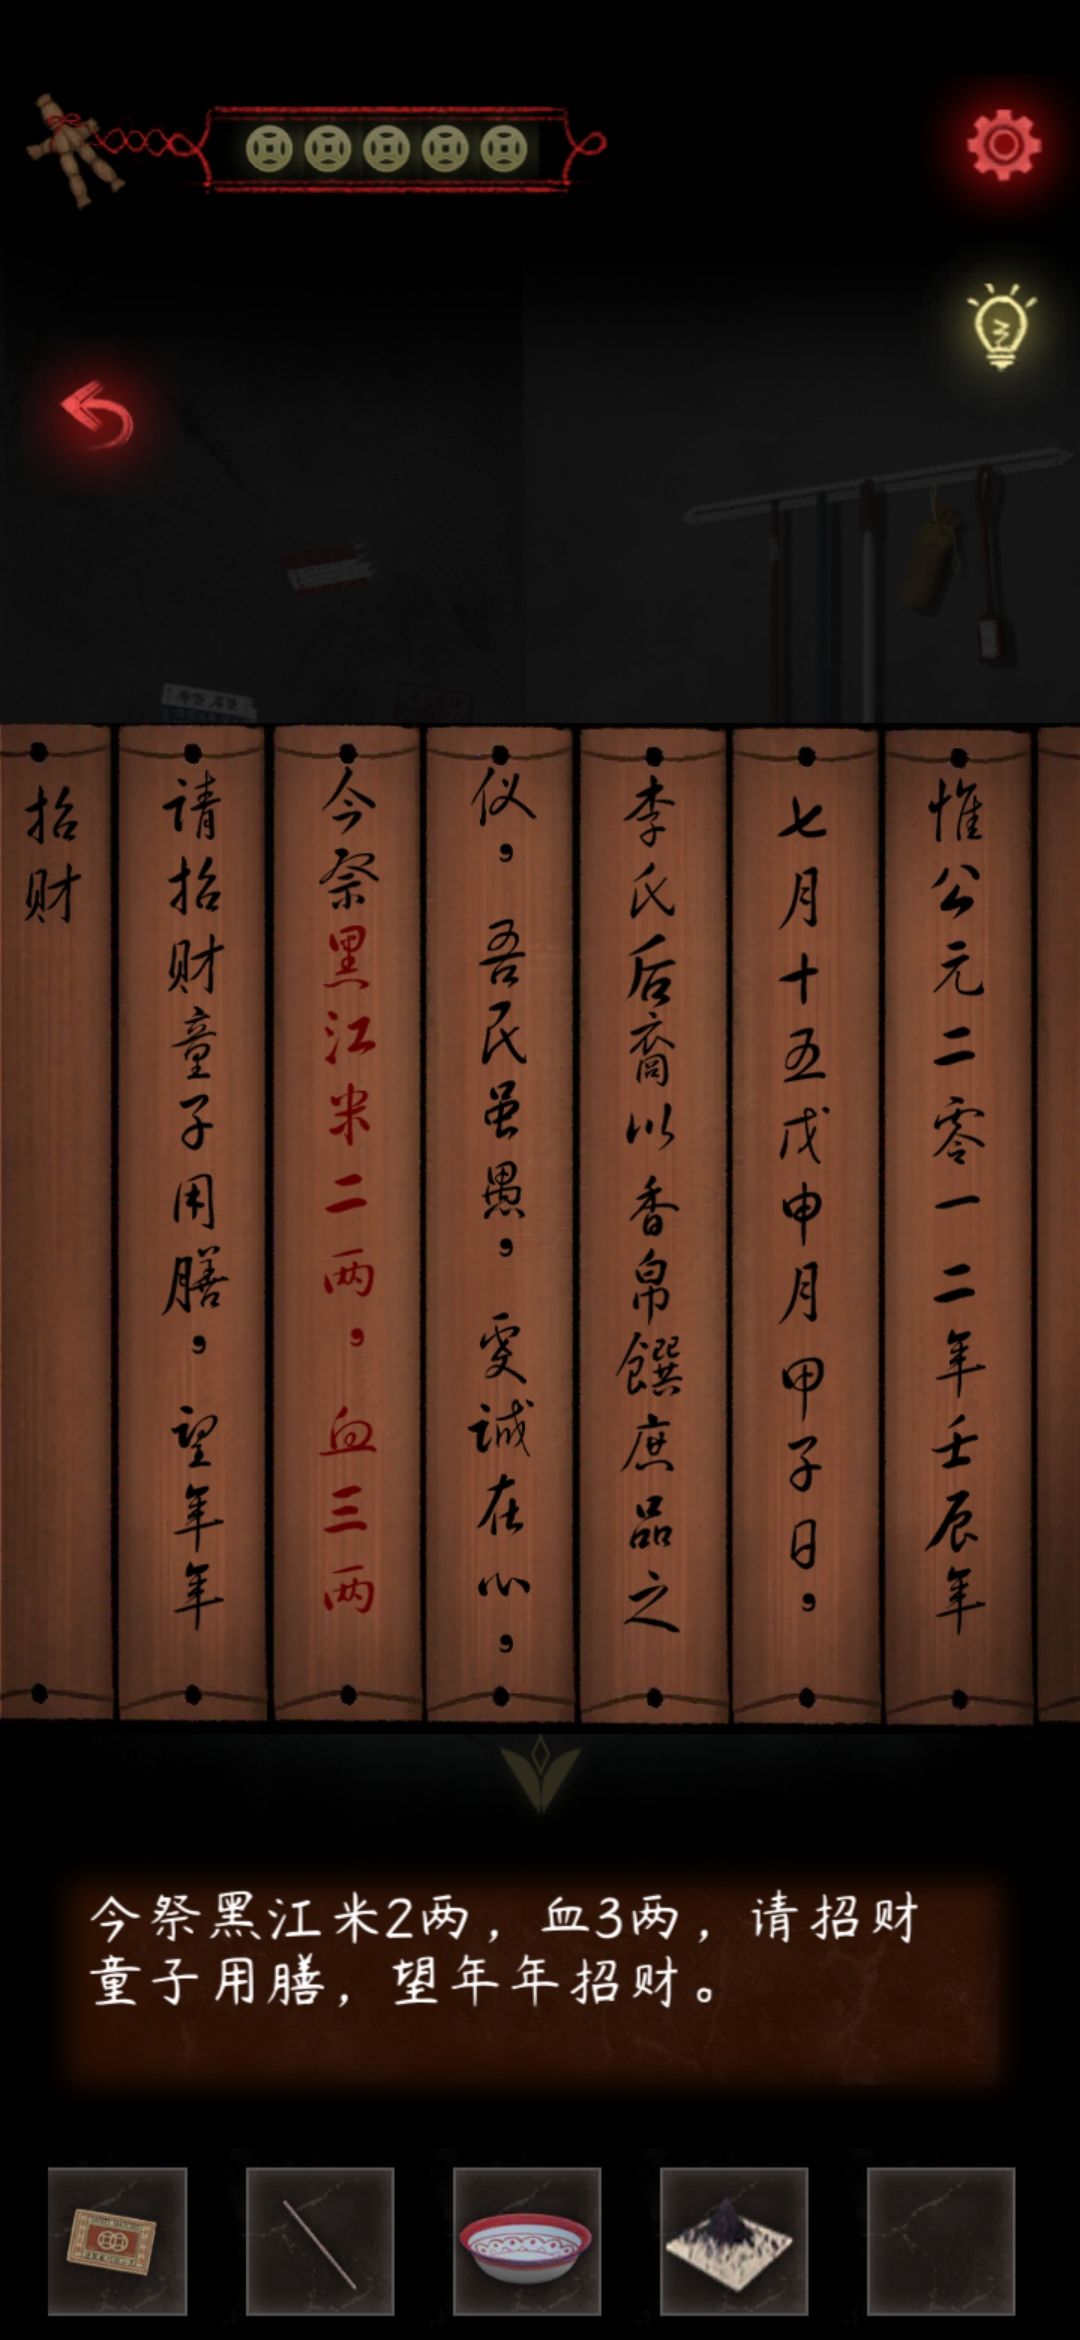 惟公元二零一二年壬辰年
七月十五戊申月甲子日，
李氏后裔以香帛饌庶品之
仪，吾民虽愚，变诚在心，
今祭黑江米二两，血三两
请招财童子用膳，望年年
招财
今祭黑江米2两，血3两，请招财
童子用膳，望年年招财。